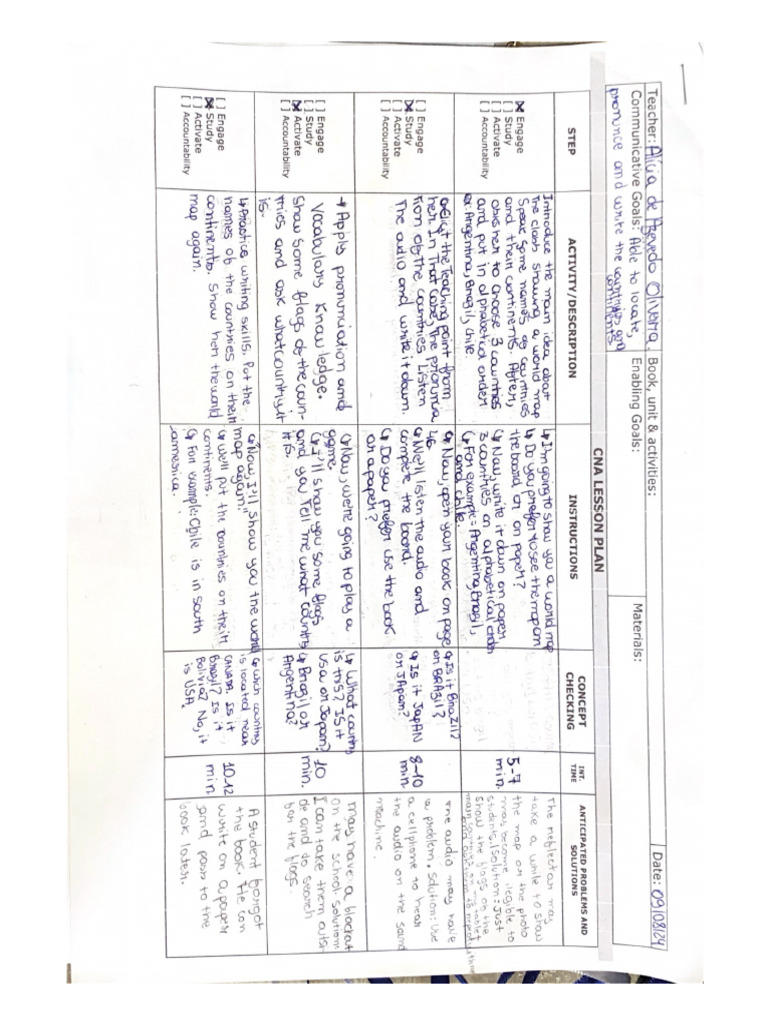 Teacher: Alicia de Azevedo Oliveira
Communicative Goals: Able to locate,
pronunce and write the countries and
continents
Book, unit & activities:
Enabling Goals:
Materials:
Date: 09/08/24
CNA LESSON PLAN
STEP
ACTIVITY/DESCRIPTION
INSTRUCTIONS
CONCEPT
CHECKING
INT.
TIME
ANTICIPATED PROBLEMS AND
SOLUTIONS
[X] Engage
[ ] Study
[ ] Activate
[ ] Accountability
Introduce the main idea about
the class showing a world map
Speak some names of countries
and their continents. After,
asks her to choose 3 countries
and put in alphabetical order
ex: Argentina, Brazil, Chile.
↳ I'm going to show you a world map
↳ Do you prefer to see the map on
the board or on paper?
↳ Now, write it down on paper,
3 countries on alphabetical order
↳ For example = Argentina, Brazil,
and chile.
5-7
min.
The reflector may
take a while to show
the map or the photo
may become illegible to
students. Solution: Just
show the flags on the
[ ] Engage
[X] Study
[ ] Activate
[ ] Accountability
the Teaching point from
her. In That case, the pronuncia
from of the countries. Listen
The audio and write it down.
↳ Now, open your book on page
46
↳ We'll listen the audio and
compete the board.
↳ Do you prefer use the book
or a paper?
↳ Is it Brazil?
or BRAzil?
↳ Is it JapAN
or JApan?
8-10
min
The audio may have
a problem. Solution: Use
a cellphone to hear
the audio on the sound
machine.
[ ] Engage
[ ] Study
[X] Activate
[ ] Accountability
→ Apply pronunciation and
Vocabulary Knowledge.
Show some flags of the coun-
tries and ask what country it
is.
↳ Now, we're going to play a
game.
↳ I'll show you some flags
and you Tell me what country
it is.
↳ What country
is this? Is it
USA or Japan?
↳ Brazil or
Argentina?
10
min.
May have a blackout
on the school solution:
I can take them outsi-
de and to search
for the flags.
[ ] Engage
[X] Study
[ ] Activate
[ ] Accountability
↳ Practice writing skills. Put the
names of the countries on their
continents. Show her the world
map again.
↳ Now, I'll show you the world
map again."
↳ We'll put the countries on their
continents.
↳ For example: Chile is in south
america.
↳ Which country
is located near
CANADA. Is it
Brazil? Is it
Bolivia? No, it
is USA.
10-12
min
A student forgot
the book. He can
write on a paper
and pass to the
book later.